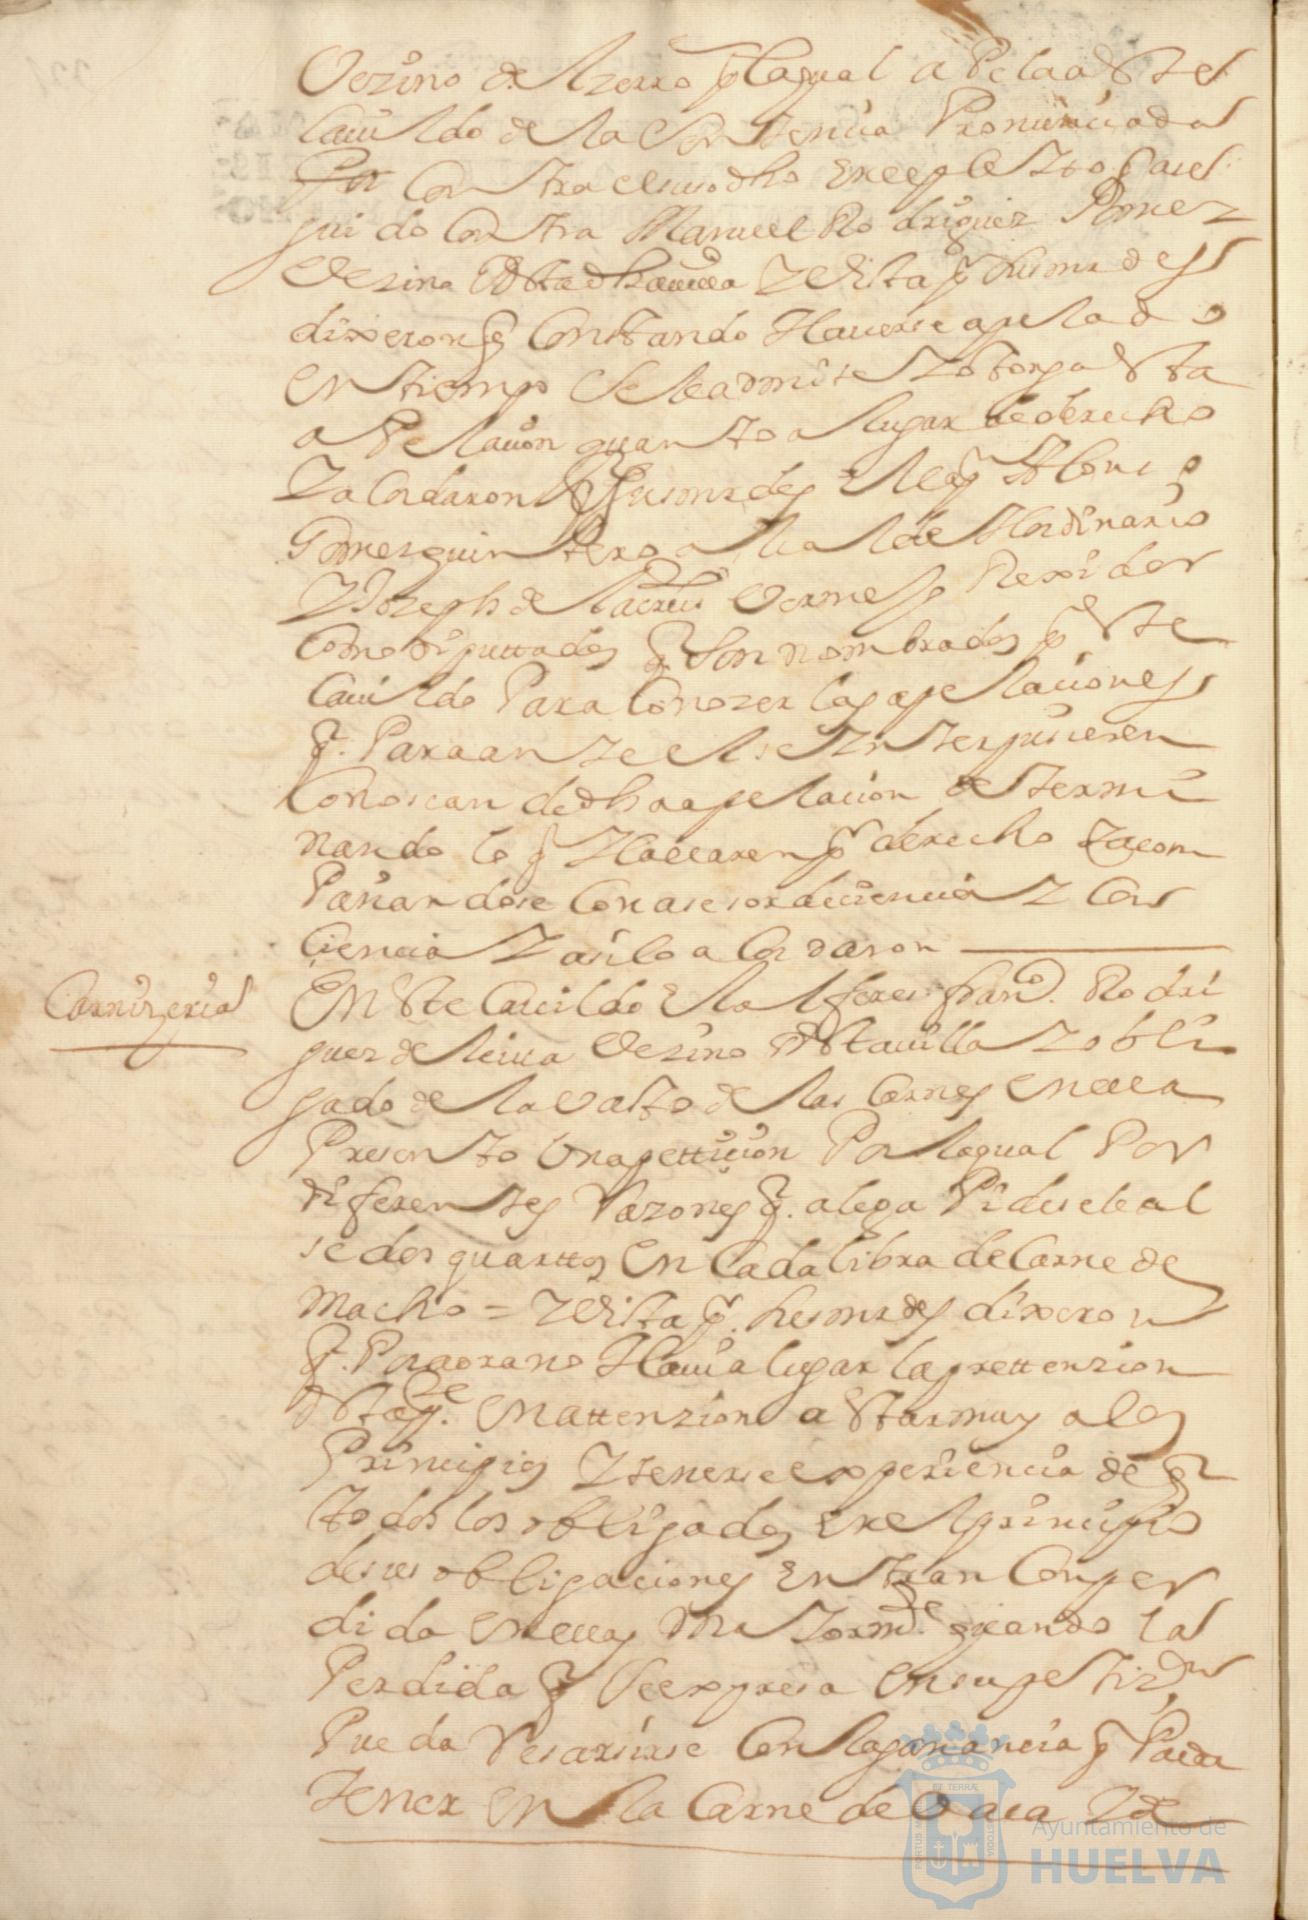 Vezino de Azerro por la qual apela a este
Cauildo de la sentencia Pronunciada
Por Contra el susodho en el pleito segui
guido Contra Manuel Rodriguez Gomez
Vezino desta dha uilla y Vista por sus mrdes
dixeron q Constando Hauerse apelado
en tiempo se le admite y otorga esta
apelacion quanto a lugar de derecho
y acordaron q sus mrdes el Capn Alonso
Gomez quintero alcalde Hordinario
y Joseph de la Cruz Vermejo Rexidor
Como diputtados q son nombrados por este
Cauildo Para Conozer las apelaciones
q. Para ante el se ynterpusieren
Conoscan de dha apelacion determi
nando lo q Hallaren por derecho y acom
Pañandose Con asesor de ciencia y Con
Ciencia y asi lo acordaron
Carnizerias
En este Cauildo el alferes Franco. Rodri
guez de leiua Vezino desta uilla y obli
gado del avasto de las Carnes en ella
Presento Una petticion Por la qual Por
diferentes Razones q. alega Pide se le al
se dos quarttos en Cada libra de Carne de
Macho = y Vista por. sus mrdes dixeron
q. Por aora no Hauia lugar la prettenzion
desta pte. en attenzion a estar muy a los
Principios y tenerse experiencia de q
todos los obligados en el principio
de sus obligaciones entran Con per
dida en ellas Ma yormte. quando la
Perdida q se expresa en su peticion
Pueda Resarsirse Con la ganancia q Puede
tener en la Carne de Vaca y de
Ayuntamiento de
HUELVA